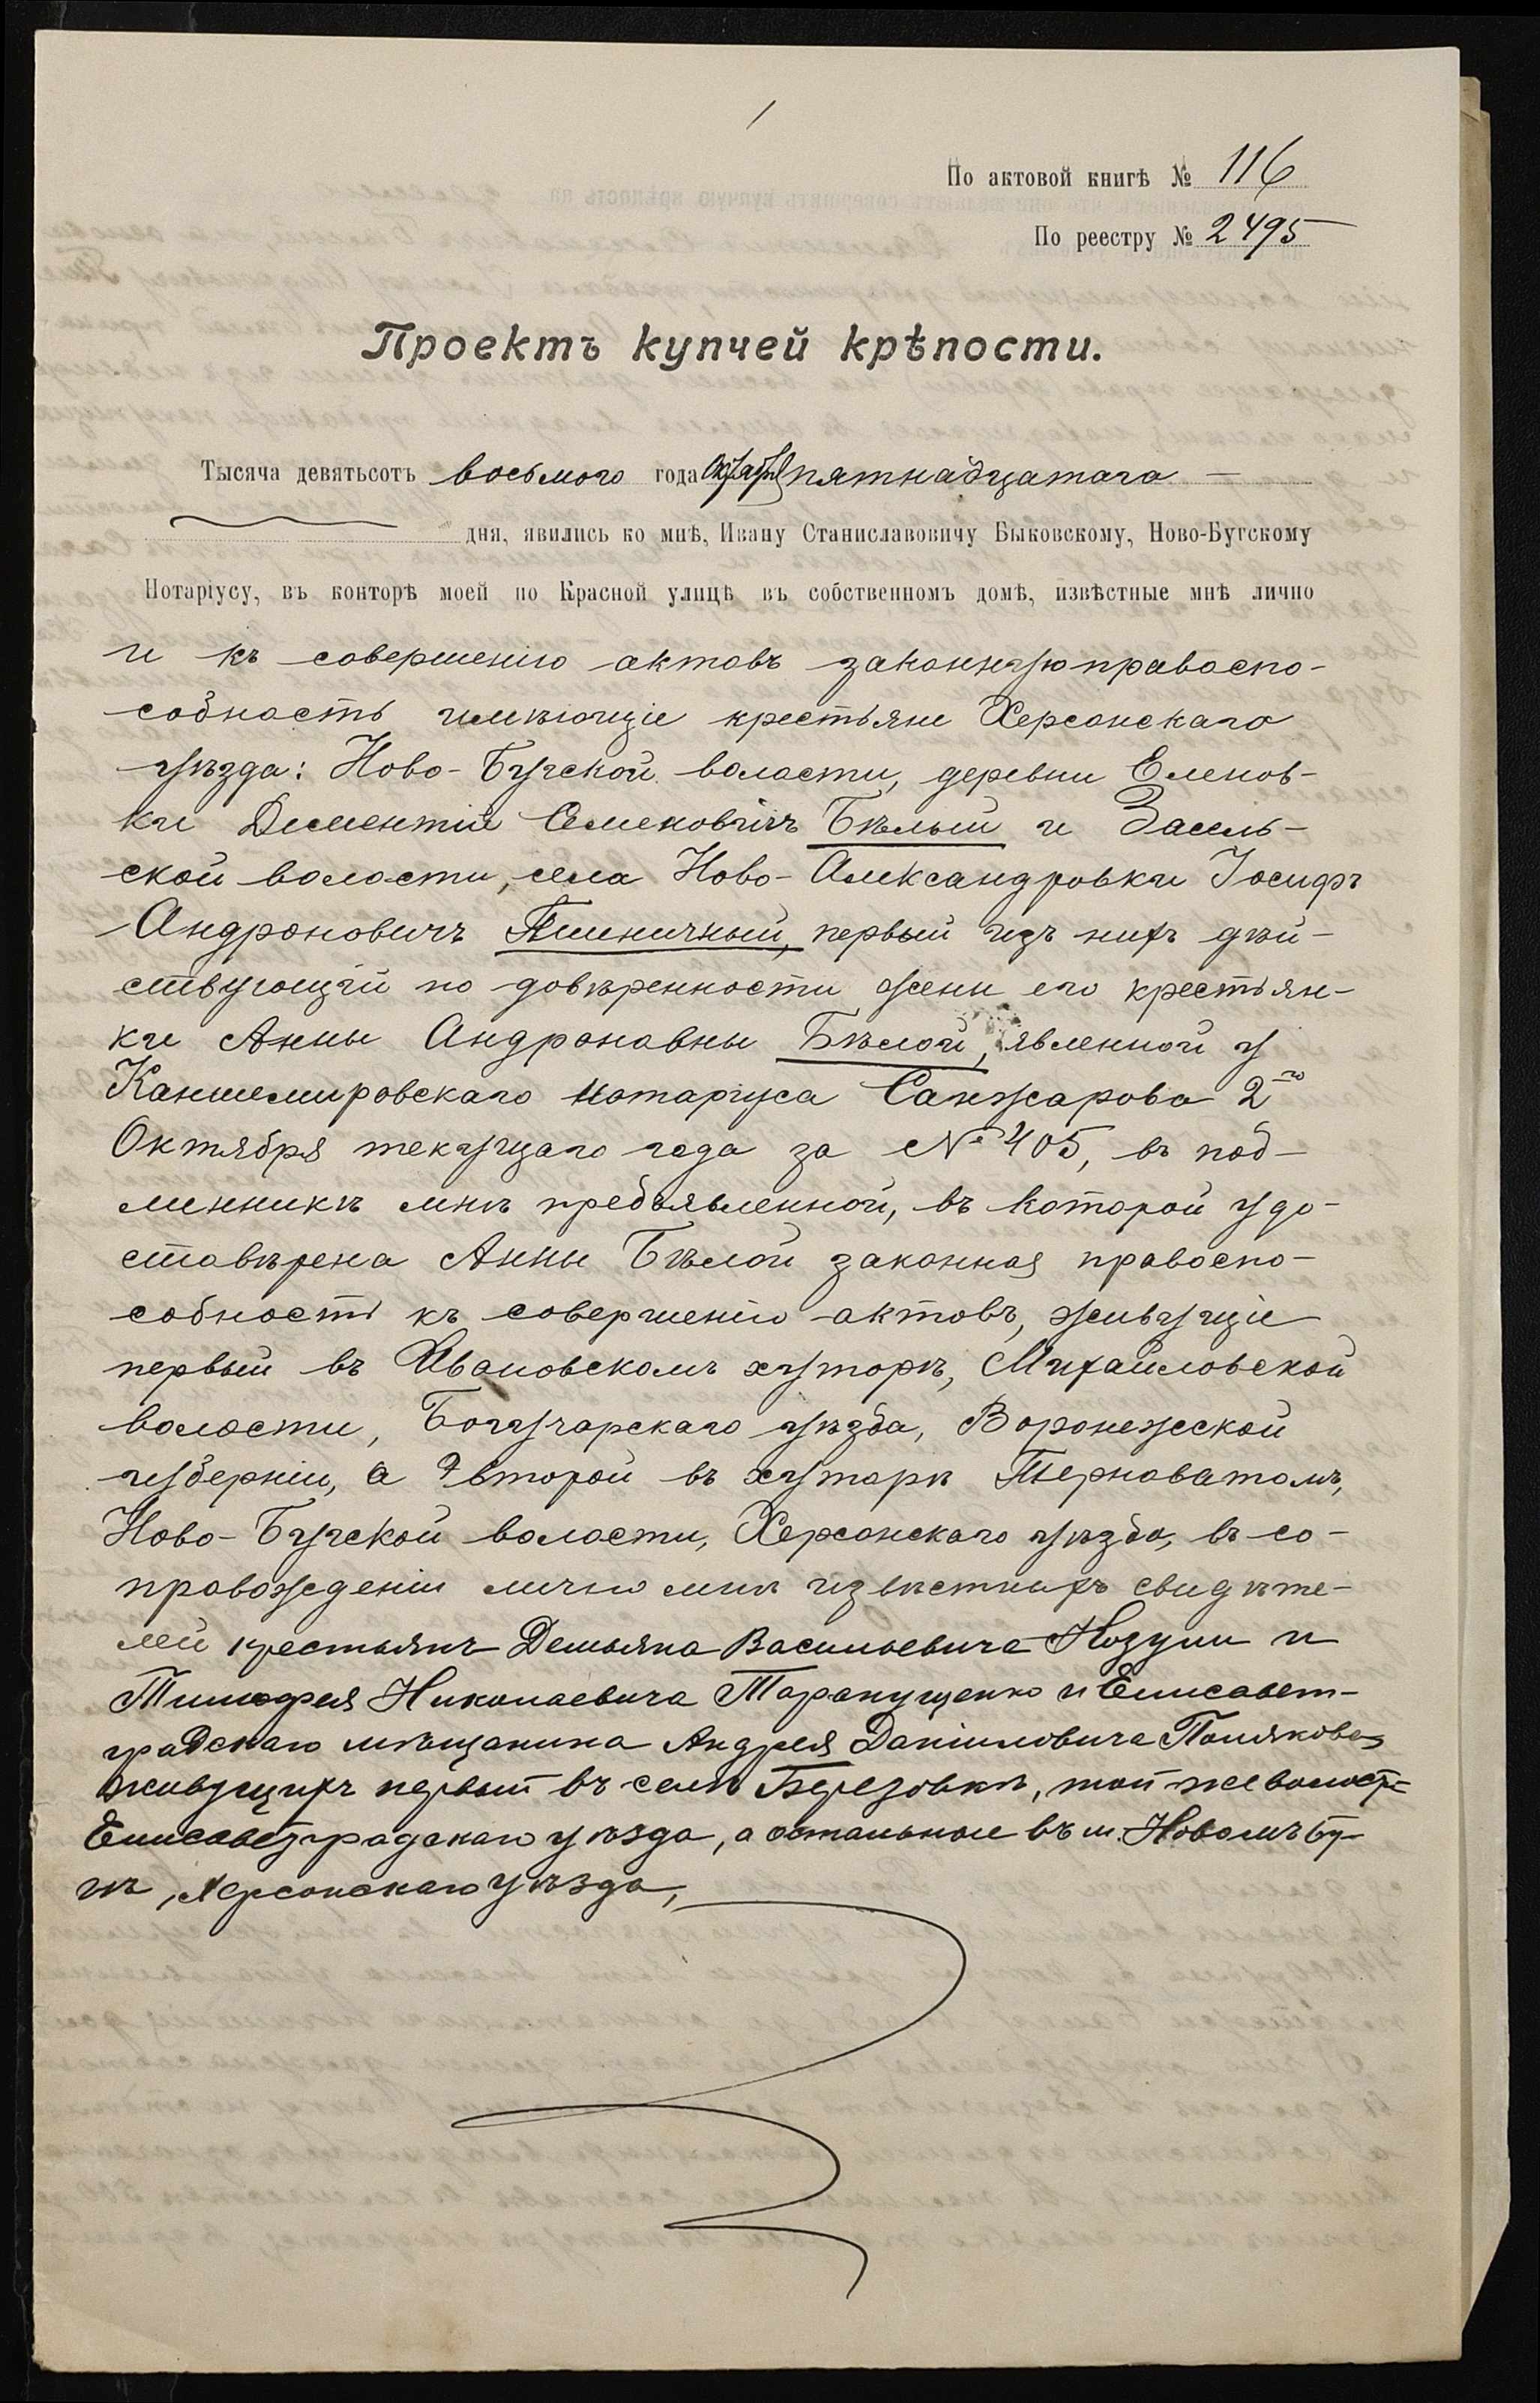 По актовой книгѣ № 116
По реестру № 2495
Проектъ купчей крѣпости.
Тысяча девятьсотъ восьмого года Октября пятнадцатаго —
дня, явились ко мнѣ, Ивану Станиславовичу Быковскому, Ново-Бугскому
Нотаріусу, въ конторѣ моей по Красной улицѣ въ собственномъ домѣ, извѣстные мнѣ лично
и къ совершенію актовъ законную правоспо-
собность имѣющіе крестьяне Херсонскаго
уѣзда: Ново-Бугской волости, деревни Еленов-
ки Дементій Семеновичъ Бѣлый и Засель-
ской волости, села Ново-Александровки Іосифъ
Андроновичъ Пшеничный, первый изъ нихъ дѣй-
ствующій по довѣренности жены его крестьян-
ки Анны Андроновны Бѣлой, явленной у
Кантемировскаго нотаріуса Санжарова 2го
Октября текущаго года за № 405, въ под-
линникѣ мнѣ предъявленной, въ которой удо-
стовѣрена Анны Бѣлой законная правоспо-
собность къ совершенію актовъ, живущіе
первый въ Ивановскомъ хуторѣ, Михайловской
волости, Богучарскаго уѣзда, Воронежской
губерніи, а второй въ хуторѣ Терноватомъ,
Ново-Бугской волости, Херсонскаго уѣзда, въ со-
провожденіи лично мнѣ извѣстныхъ свидѣте-
лей крестьянъ Демьяна Васильевича Нозули и
Тимофея Николаевича Таранущенко и Елисавет-
градскаго мѣщанина Андрея Даніиловича Полякова,
живущихъ первый въ селѣ Березовкѣ, той же волости
Елисаветградскаго уѣзда, а остальные въ м. Новомъ Бу-
гѣ, Херсонскаго уѣзда,